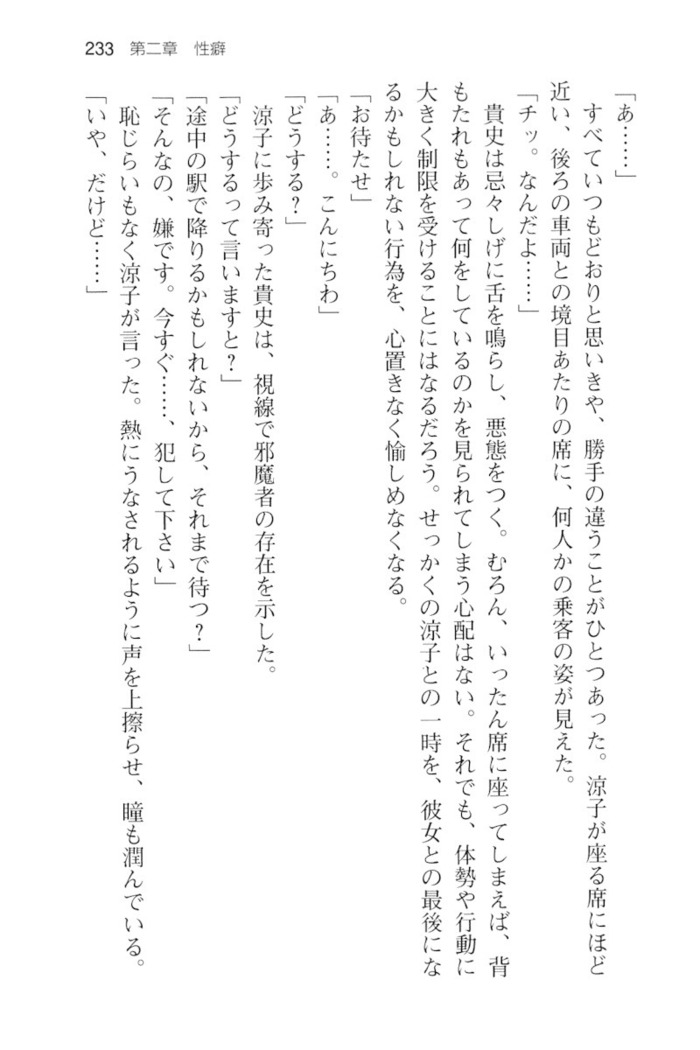 233 第二章 性癖
「あ……」
すべていつもどおりと思いきや、勝手の違うことがひとつあった。涼子が座る席にほど
近い、後ろの車両との境目あたりの席に、何人かの乗客の姿が見えた。
「チッ。なんだよ……」
貴史は忌々しげに舌を鳴らし、悪態をつく。むろん、いったん席に座ってしまえば、背
もたれもあって何をしているのかを見られてしまう心配はない。それでも、体勢や行動に
大きく制限を受けることにはなるだろう。せっかくの涼子との一時を、彼女との最後にな
るかもしれない行為を、心置きなく愉しめなくなる。
「お待たせ」
「あ……。こんにちわ」
「どうする?」
涼子に歩み寄った貴史は、視線で邪魔者の存在を示した。
「どうするって言いますと?」
「途中の駅で降りるかもしれないから、それまで待つ?」
「そんなの、嫌です。今すぐ……、犯して下さい」
恥じらいもなく涼子が言った。熱にうなされるように声を上擦らせ、瞳も潤んでいる。
「いや、だけど……」